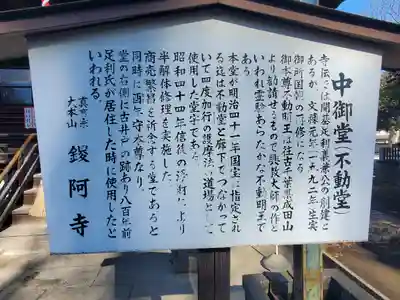 中御堂(不動堂)
寺伝では開基足利義兼公の創建と
あるが、文禄元年(一五九二年)生実
御所国朝の再修になる
御本尊不動明王は往古千葉県成田山
より勧請せるもので興教大師の作と
いわれ霊験あらたかな不動明王で
ある
本堂が明治四十一年国宝に指定され
る迄は不動堂と廊下でつながって
いて四度加行の護摩法の道場として
使用した堂宇である。
昭和四十四年信徒の浄財により
半解体修理を実施した
商売繁昌を祈念する堂であると
同時に酉年守本尊なり、
堂の右側に古井戸の跡あり八百年前
足利氏が居住した時に使用したと
いわれる。
真言宗
大本山 鑁阿寺